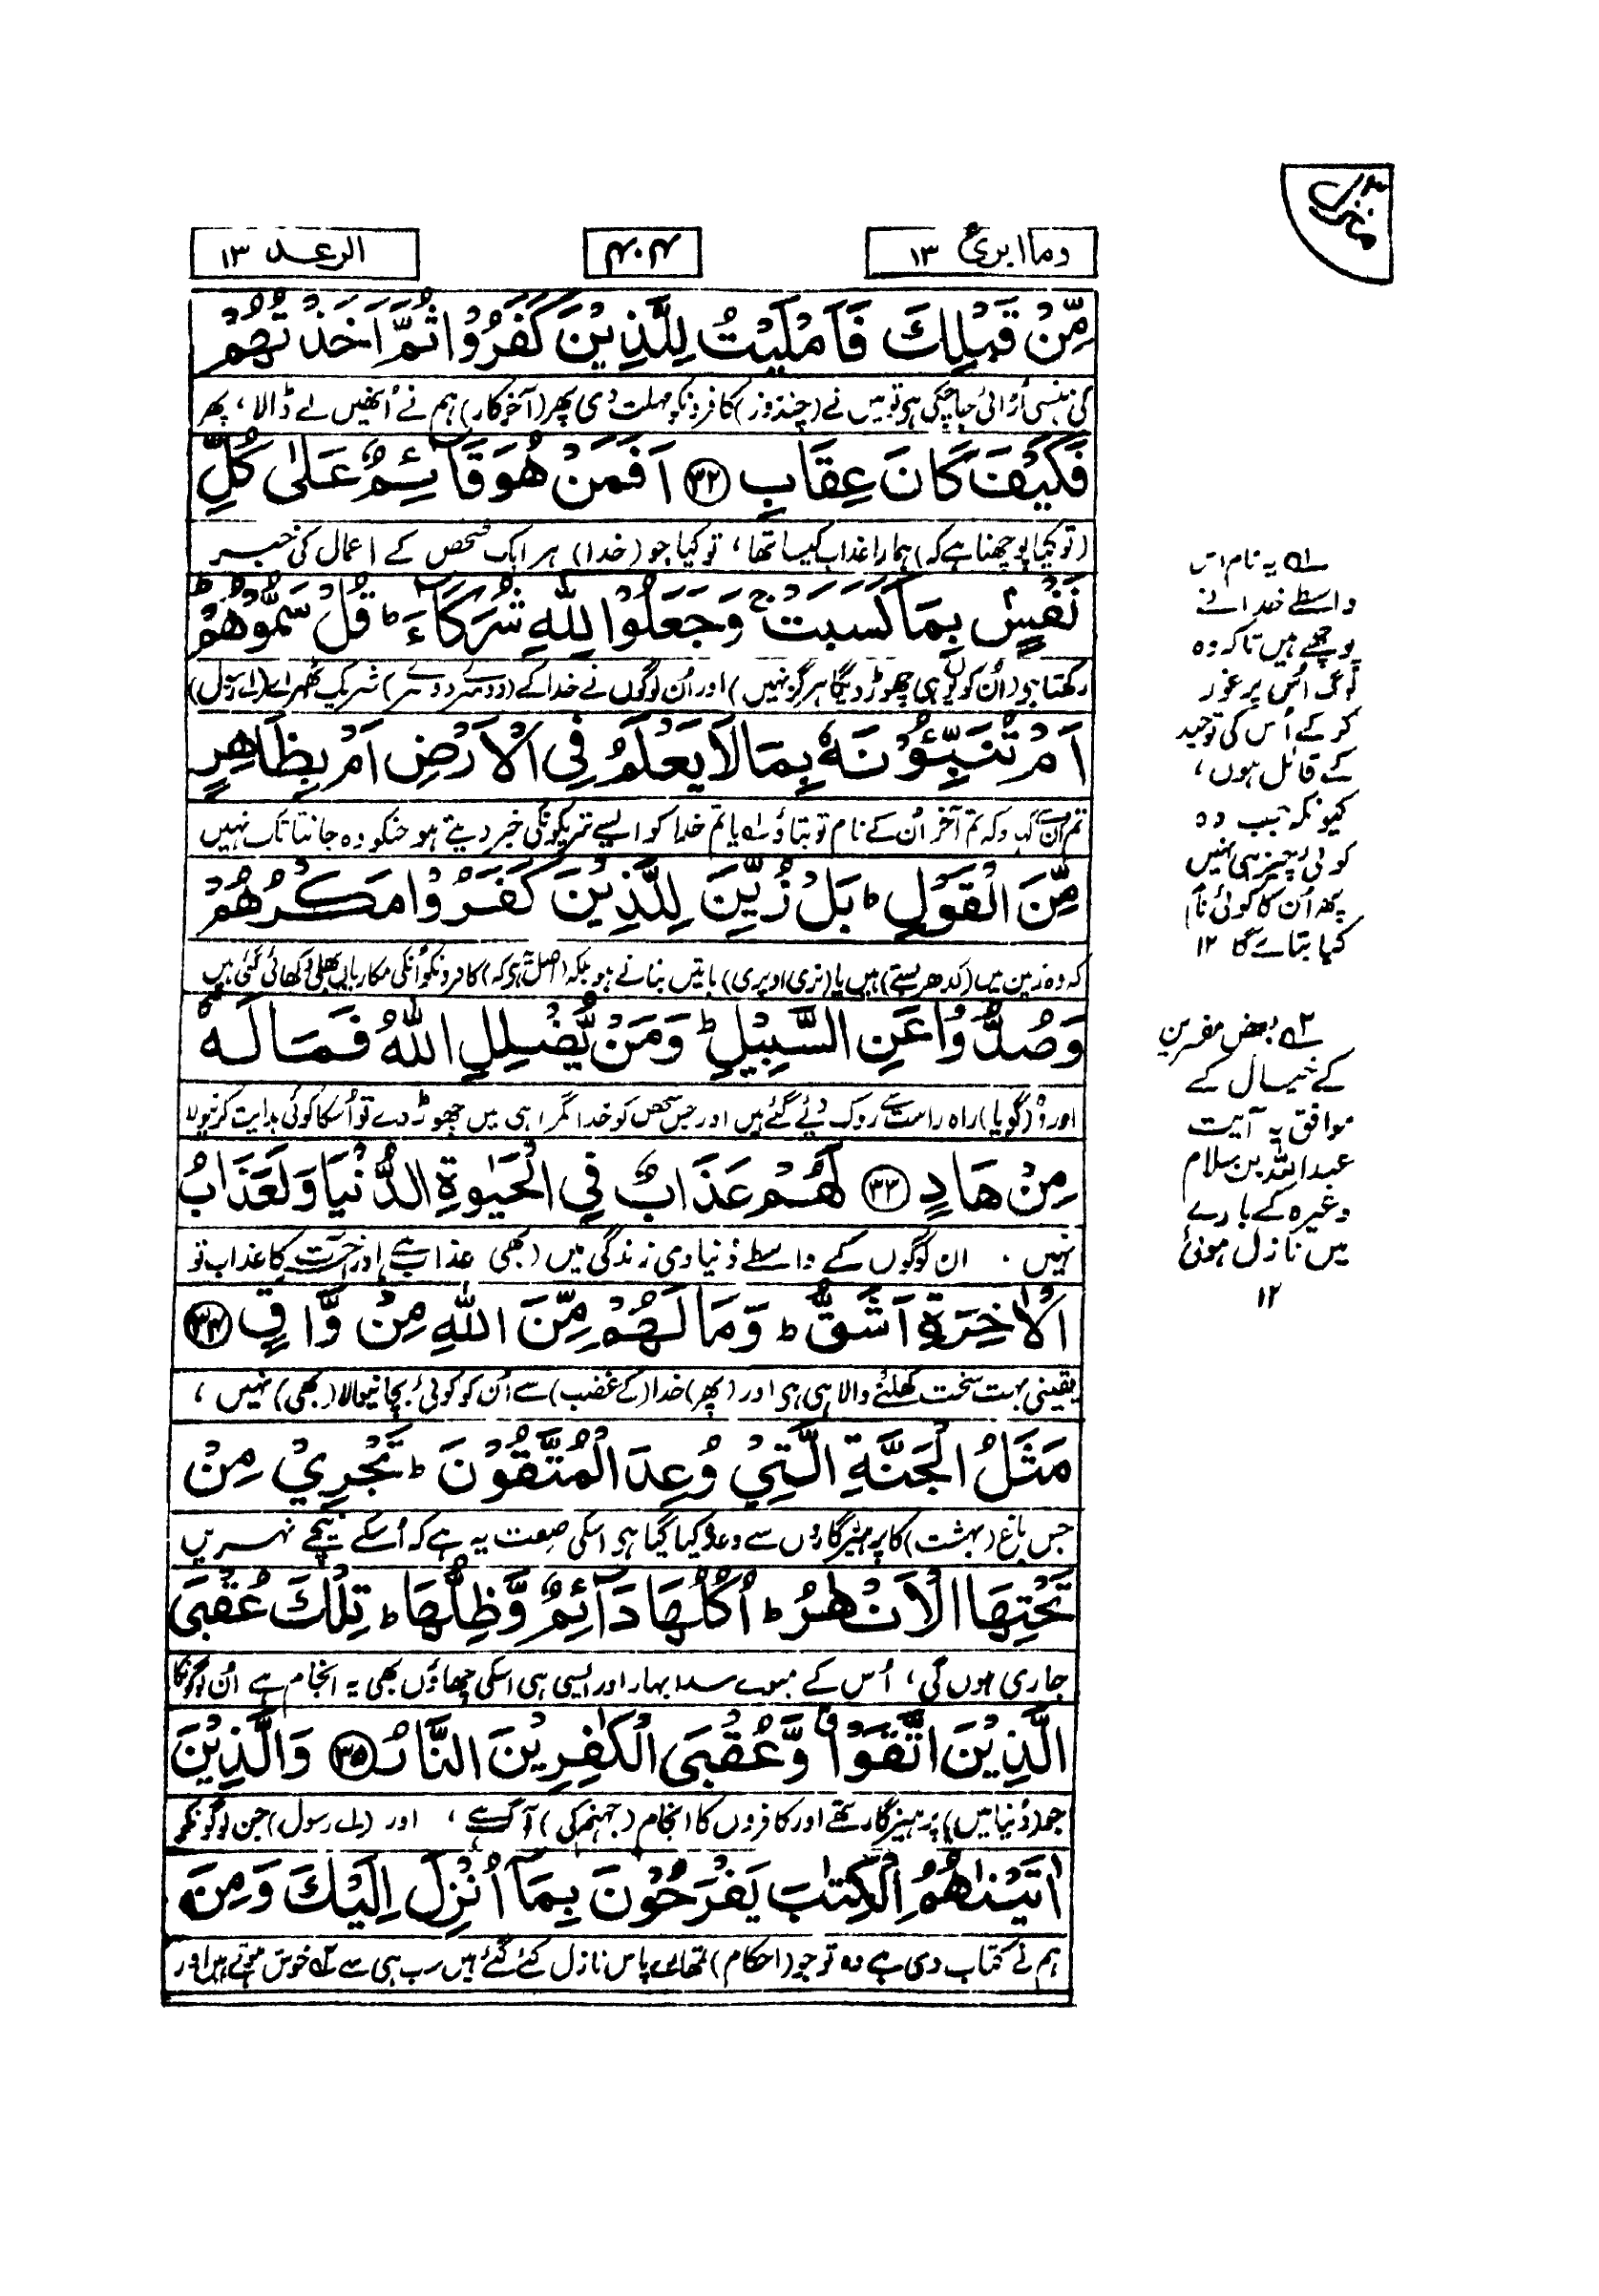 منزل
وما ابرئ ١٣
۴۰۴
الرعد ١٣
مِّنْ قَبْلِكَ فَاَمْلَيْتُ لِلَّذِيْنَ كَفَرُوْا ثُمَّ اَخَذْتُهُمْ
کی ہنسی اُڑائی جا چکی ہی تو میں نے (چند روز) کافرونکو مہلت دی پھر (آخرکار) ہم نے اُنھیں لے ڈالا، پھر
فَكَيْفَ كَانَ عِقَابِ ﴿٣٢﴾ اَفَمَنْ هُوَ قَآئِمٌ عَلٰى كُلِّ
(تو کیا پوچھنا ہے کہ) ہمارا عذاب کیسا تھا، تو کیا جو (خدا) ہر ایک شخص کے اعمال کی خبر
نَفْسٍۭ بِمَا كَسَبَتْ ۚ وَجَعَلُوْا لِلّٰهِ شُرَكَآءَ ؕ قُلْ سَمُّوْهُمْ ؕ
رکھتا ہی (اُن کو یوں ہی چھوڑ دیگا ہرگز نہیں) اور اُن لوگوں نے خدا کے (دوسرے دوسرے) شریک ٹھہرائے (اے رسول)
اَمْ تُنَبِّـُٔوْنَهٗ بِمَا لَا يَعْلَمُ فِى الْاَرْضِ اَمْ بِظَاهِرٍ
تم اُن سے کہدو کہ تم آخر اُن کے نام تو بتاؤ ۱؎ یا تم خدا کو ایسے شریکونکی خبر دیتے ہو جنکو وہ جانتا تک نہیں
مِّنَ الْقَوْلِ ؕ بَلْ زُيِّنَ لِلَّذِيْنَ كَفَرُوْا مَكْرُهُمْ
کہ وہ زمین میں (کدھر بستے) ہیں یا (نری اوپری) باتیں بناتے ہو بلکہ (اصل یہ ہی کہ) کافرونکو اُنکی مکاریاں بھلی دکھائی گئی ہیں
وَصُدُّوْا عَنِ السَّبِيْلِ ؕ وَمَنْ يُّضْلِلِ اللّٰهُ فَمَا لَهٗ
اور وُہ (گویا) راہ راست سے روک دیئے گئے ہیں اور جس شخص کو خدا گمراہی میں چھوڑ دے تو اُسکا کوئی ہدایت کرنیوالا
مِنْ هَادٍ ﴿٣٣﴾ لَهُمْ عَذَابٌ فِى الْحَيٰوةِ الدُّنْيَا وَلَعَذَابُ
نہیں ۔ ان لوگوں کے واسطے دُنیاوی زندگی میں (بھی) عذاب ہے اور آخرت کا عذاب تو
الْاٰخِرَةِ اَشَقُّ ؕ وَمَا لَهُمْ مِّنَ اللّٰهِ مِنْ وَّاقٍ ﴿٣٤﴾
یقینی بہت سخت کھلنے والا ہی ہی اور (پھر) خدا (کے غضب) سے اُن کو کوئی بچانیوالا (بھی) نہیں،
مَثَلُ الْجَنَّةِ الَّتِىْ وُعِدَ الْمُتَّقُوْنَ ؕ تَجْرِيْ مِنْ
جس باغ (بہشت) کا پرہیزگاروں سے وعدہ کیا گیا ہی اسکی صفت یہ ہے کہ اُسکے نیچے نہریں
تَحْتِهَا الْاَنْهٰرُ ؕ اُكُلُهَا دَآئِمٌ وَّظِلُّهَا ؕ تِلْكَ عُقْبَى
جاری ہوں گی، اُس کے میوے سدا بہار اور ایسی ہی اسکی چھاؤں بھی یہ انجام ہے اُن لوگونکا
الَّذِيْنَ اتَّقَوْا ۖ وَّعُقْبَى الْكٰفِرِيْنَ النَّارُ ﴿٣٥﴾ وَالَّذِيْنَ
جو (دُنیا میں) پرہیزگار تھے اور کافروں کا انجام (جہنم کی) آگ ہے، اور (اے رسول) جن لوگونکو
اٰتَيْنٰهُمُ الْكِتٰبَ يَفْرَحُوْنَ بِمَآ اُنْزِلَ اِلَيْكَ وَمِنَ
ہم نے کتاب دی ہے وہ تو جو (احکام) تمھارے پاس نازل کئے گئے ہیں سب ہی سے ۲؎ خوش ہوتے ہیں اور
۱؎ یہ نام اس
واسطے خدا نے
پوچھے ہیں تاکہ وہ
لوگ اُس پر غور
کر کے اُس کی توحید
کے قائل ہوں،
کیونکہ جب وہ
کوئی چیز ہی نہیں
پھر اُن کا کوئی نام
کیا بتائے گا ۱۲
۲؎ بعض مفسرین
کے خیال کے
موافق یہ آیت
عبد اللہ بن سلام
وغیرہ کے بارے
میں نازل ہوئی
۱۲